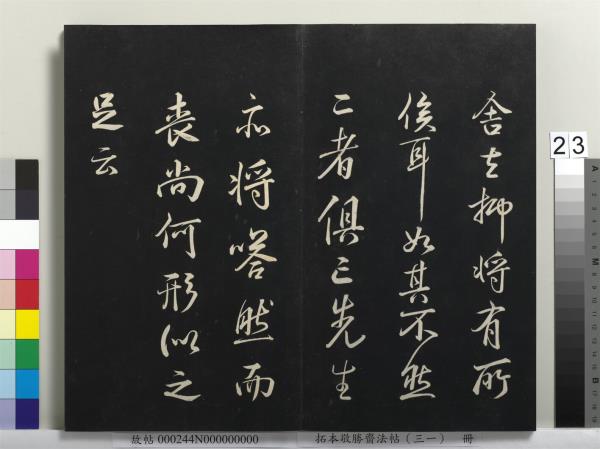 舍之抑將有所
俟耶如其不然
二者俱亡先生
亦將嗒然而
喪尚何形似之
足云
23
故帖 000244N000000000
拓本敬勝齋法帖（三一） 冊